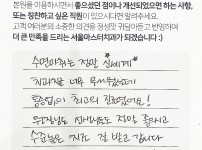 본원을 이용하시면서 좋으셨던 점이나 개선되었으면 하는 사항,
또는 칭찬하고 싶은 직원이 있으시다면 알려주세요.
고객 여러분의 소중한 의견을 정성껏 귀담아듣고 반영하여
더 큰 만족을 드리는 서울마스터치과가 되겠습니다 :)
수면마취는 정말 신세계
치과진료 너무 무서웠는데
통증없이 최고의 진료였어요!
원장님도 친절하시고
수술도 잘 받고 갑니다